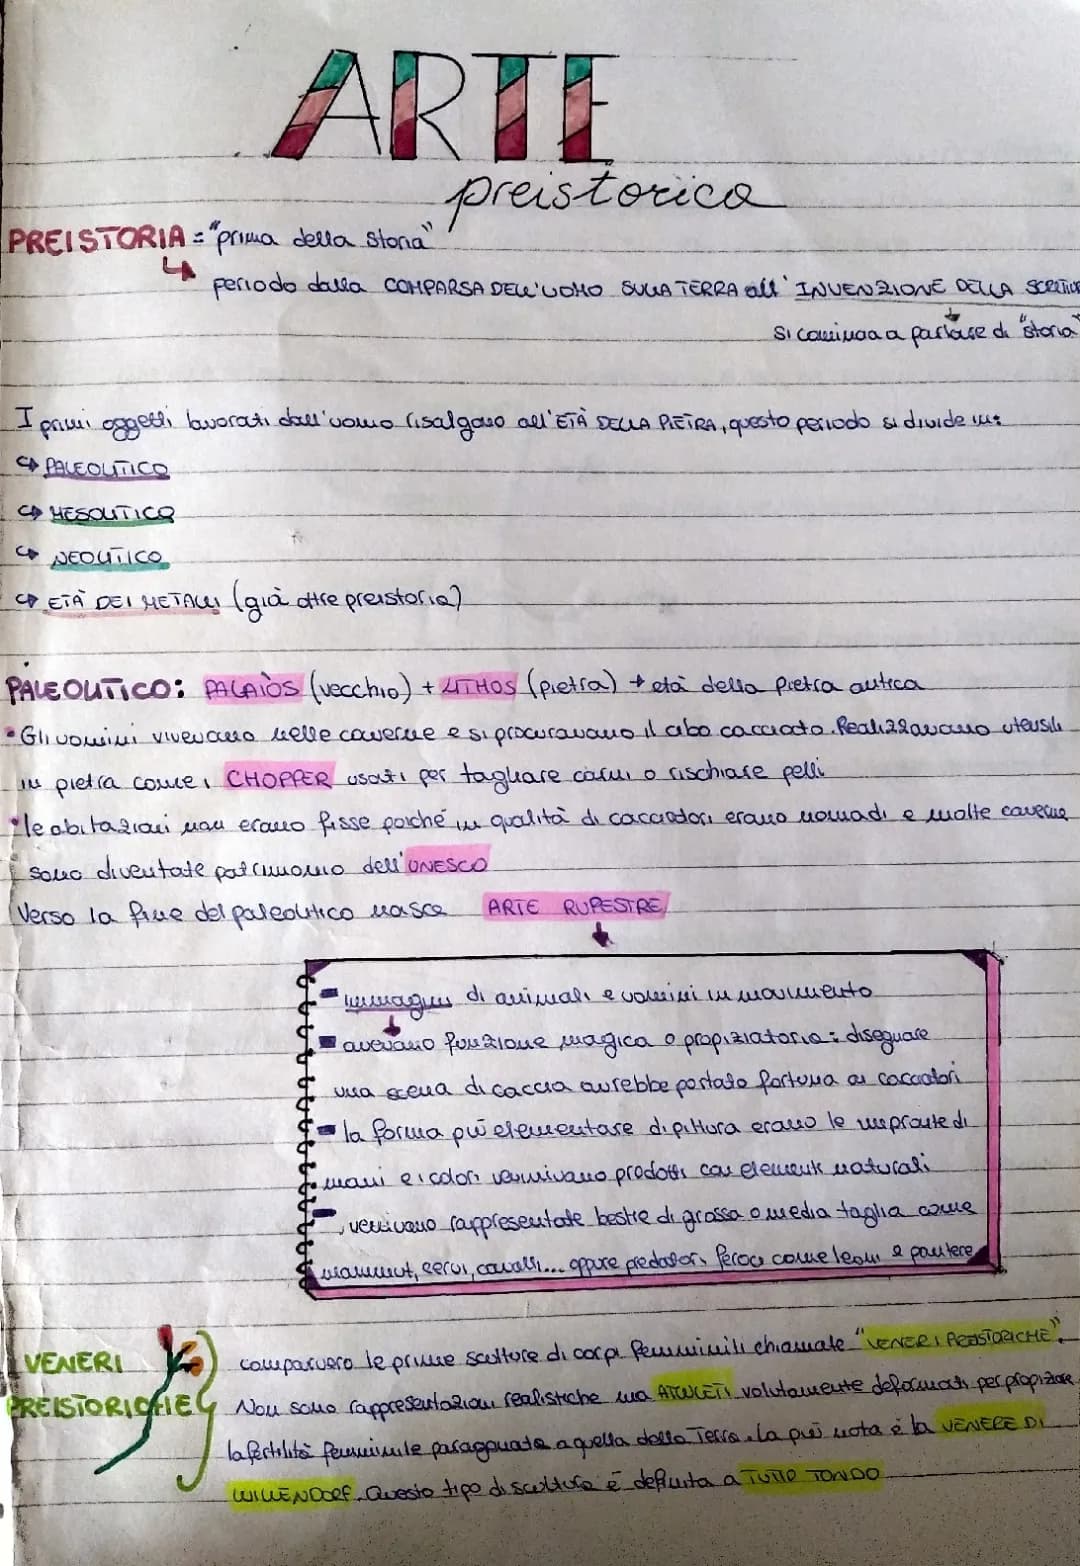 ARTE
preistorica
PREISTORIA = "prima della storia"
periodo dalla COMPARSA DELL'UOMO SULLA TERRA all' INVENZIONE DELLA
si comincia a parlare di "storia"
I primi oggetti lavorati dall'uomo risalgono all'ETÀ DELLA PIETRA, questo periodo si divide in:
↪ PALEOLITICO
↪ MESOLITICO
↪ NEOLITICO
↪ ETÀ DEI METALLI (già oltre preistoria)
PALEOLITICO: PALAIÒS (vecchio) + LITHOS (pietra) → età della pietra antica
• Gli uomini vivevano nelle caverne e si procuravano il cibo cacciato. Realizzavano utensili
in pietra come i CHOPPER usati per tagliare carni o rischiare pelli
• le abitazioni non erano fisse poiché in qualità di cacciatori erano nomadi e molte caverne
sono diventate patrimonio dell'UNESCO
Verso la fine del paleolitico nasce ARTE RUPESTRE
immagini di animali e uomini in movimento
avevano funzione magica o propiziatoria: disegnare
una scena di caccia avrebbe portato fortuna ai cacciatori
la forma più elementare di pittura erano le impronte di
mani e i colori venivano prodotti con elementi naturali
venivano rappresentate bestie di grossa o media taglia come
mammut, cervi, cavalli... oppure predatori feroci come leoni e pantere
VENERI
PREISTORICHE
comparvero le prime sculture di corpi femminili chiamate "VENERI PREISTORICHE".
Non sono rappresentazioni realistiche ma AMULETI volutamente deformati per propiziare
la fertilità femminile paragonata a quella della Terra. La più nota è la VENERE DI
WILLENDORF. Questo tipo di scultura è definita a TUTTO TONDO